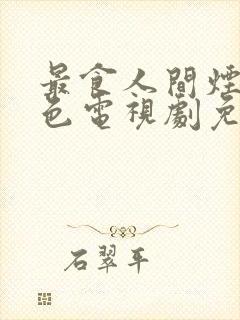 最食人間煙
色電視劇免
石翠平